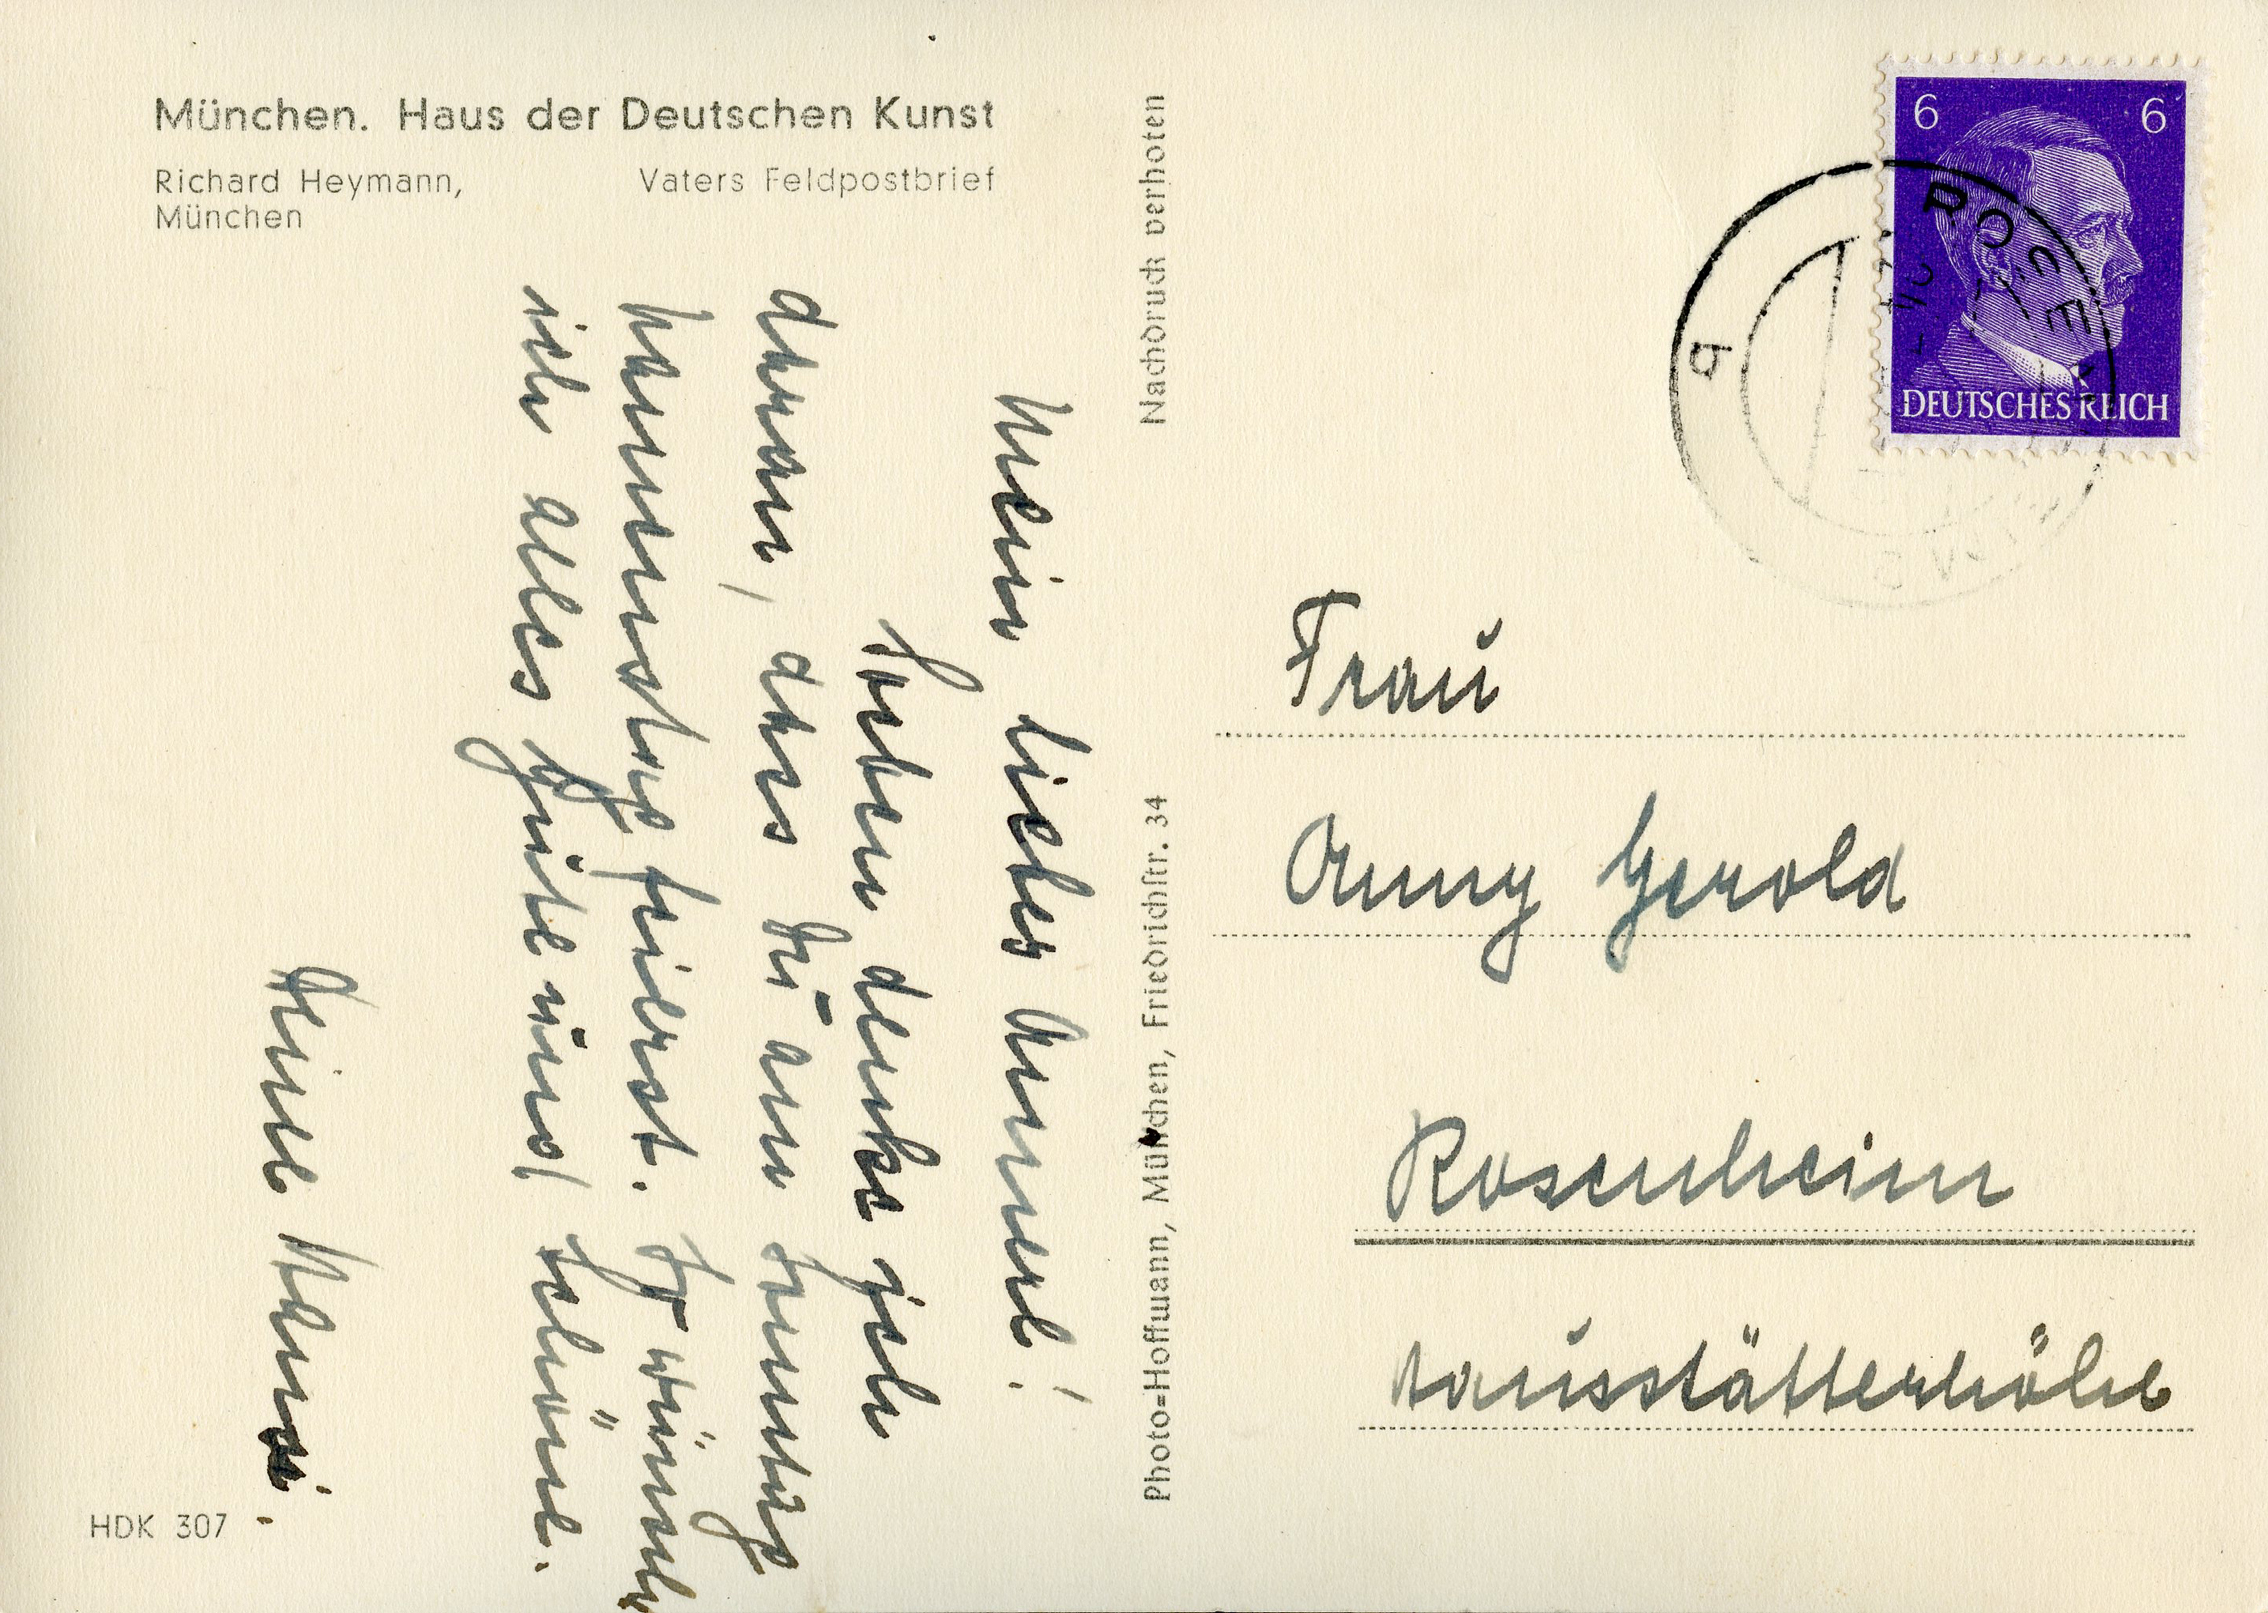 München. Haus der Deutschen Kunst
Richard Heymann,
München
Vaters Feldpostbrief
Mein liebes Annerl!
Soeben denke ich
daran, dass Du am Sonntag
Namenstag feierst. So wünsch
ich alles Gute und Schöne.
Deine
HDK 307
Nachdruck verboten
Photo=Hoffmann, München, Friedrichstr. 34
6 6
DEUTSCHES REICH
ROSEN
b
Frau
Anny Gerold
Rosenheim
Hausstätterhöhe